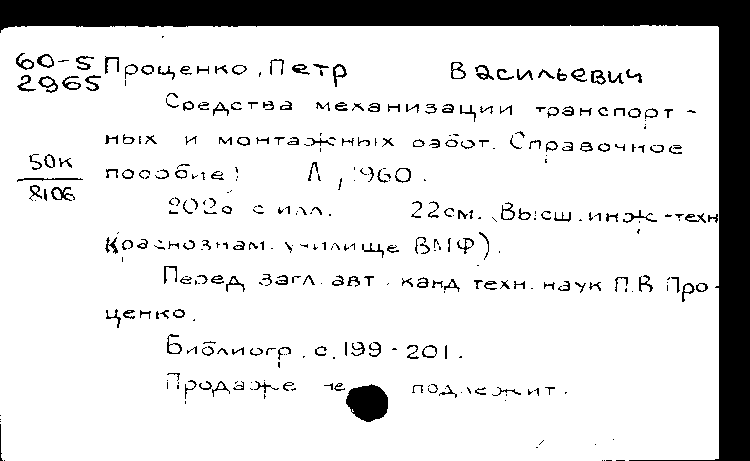 60-5 Проценко, Петр Васильевич
2965
Средства механизации транспорт-
ных и монтажных работ. Справочное
50к пособие) Л, 1960.
8106
202с с илл. 22см. (Высш. инж-техн
Краснознам. училище ВМФ).
Перед загл. авт. канд техн. наук П.В Про-
ценко.
Библиогр. с. 199-201.
Продаже не подлежит.